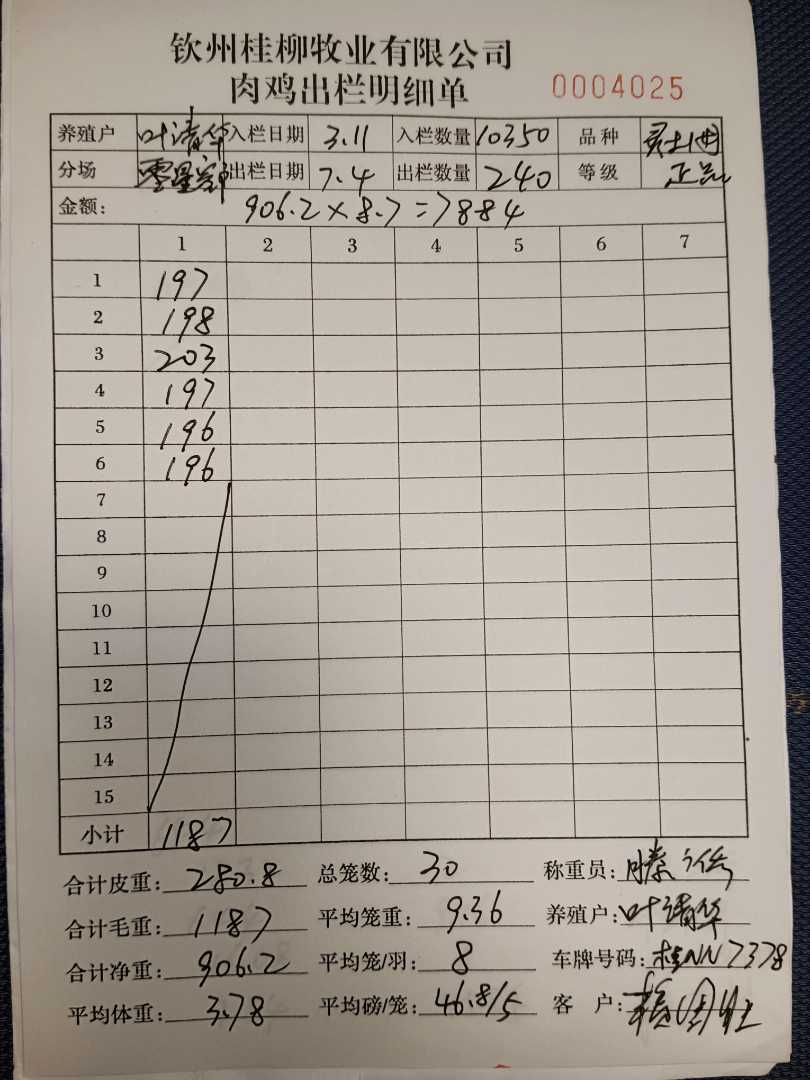 钦州桂柳牧业有限公司
肉鸡出栏明细单 0004025
养殖户 叶清华 入栏日期 3.11 入栏数量 10350 品种
分场 零星客户 出栏日期 7.4 出栏数量 240 等级 正品
金额: 906.2×8.7=7884
1 2 3 4 5 6 7
1 197
2 198
3 203
4 197
5 196
6 196
7
8
9
10
11
12
13
14
15
小计 1187
合计皮重: 280.8 总笼数: 30 称重员: 滕
合计毛重: 1187 平均笼重: 9.36 养殖户: 叶清华
合计净重: 906.2 平均笼/羽: 8 车牌号码: 桂NN7378
平均体重: 3.78 平均磅/笼: 46.8/5 客 户: